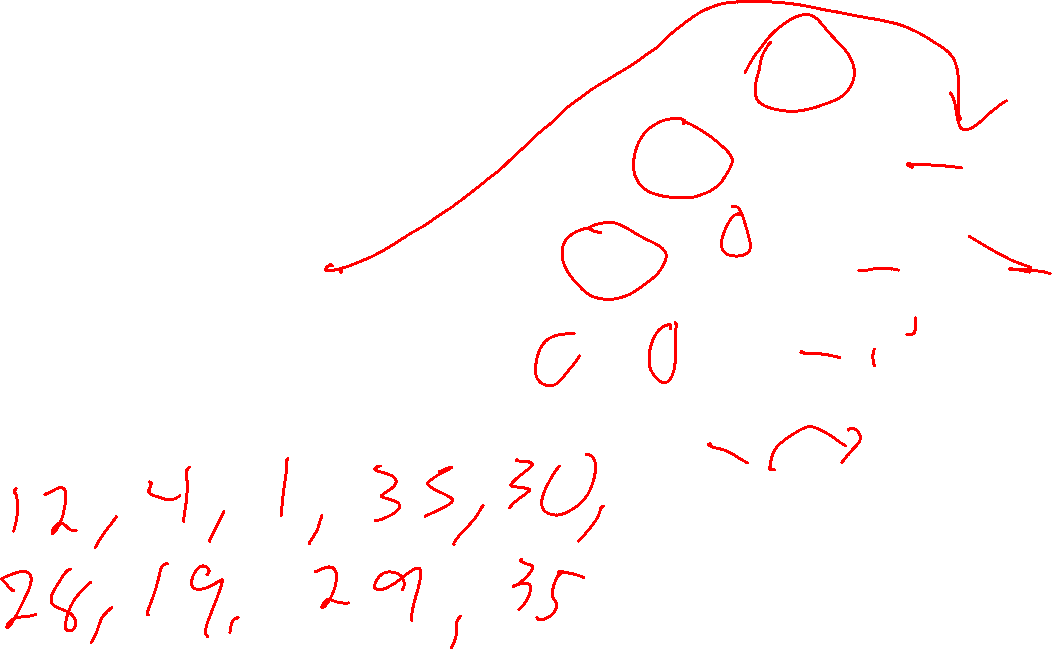 12, 4, 1, 35, 30,
28, 19, 29, 35